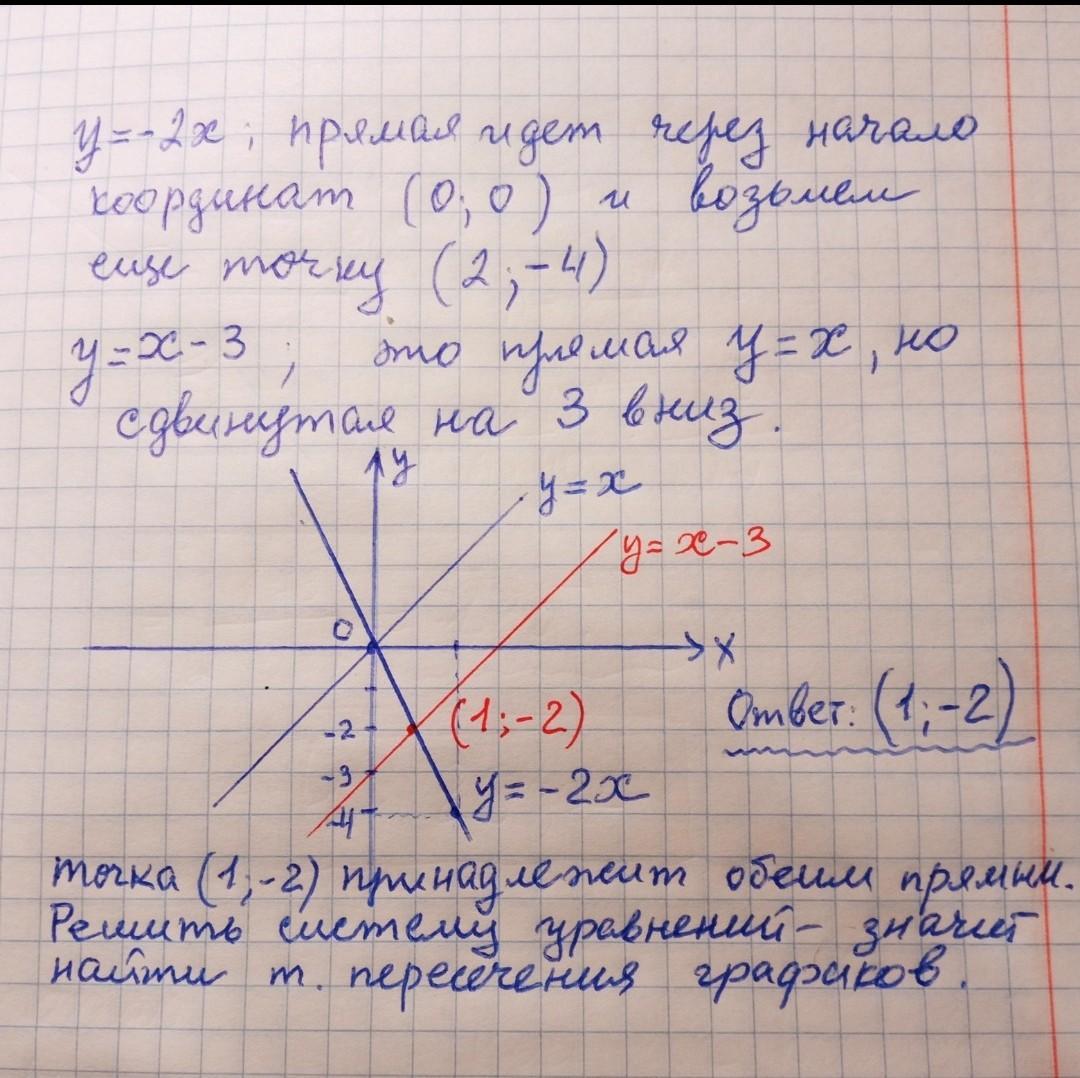 y=-2x; прямая идет через начало
координат (0;0) и возьмем
еще точку (2;-4)
y=x-3; это прямая y=x, но
сдвинутая на 3 вниз.
y
y=x
y=x-3
0
x
(1;-2)
Ответ: (1;-2)
-2
-3
-4
y=-2x
точка (1;-2) принадлежит обеим прямым.
Решить систему уравнений - значит
найти т. пересечения графиков.